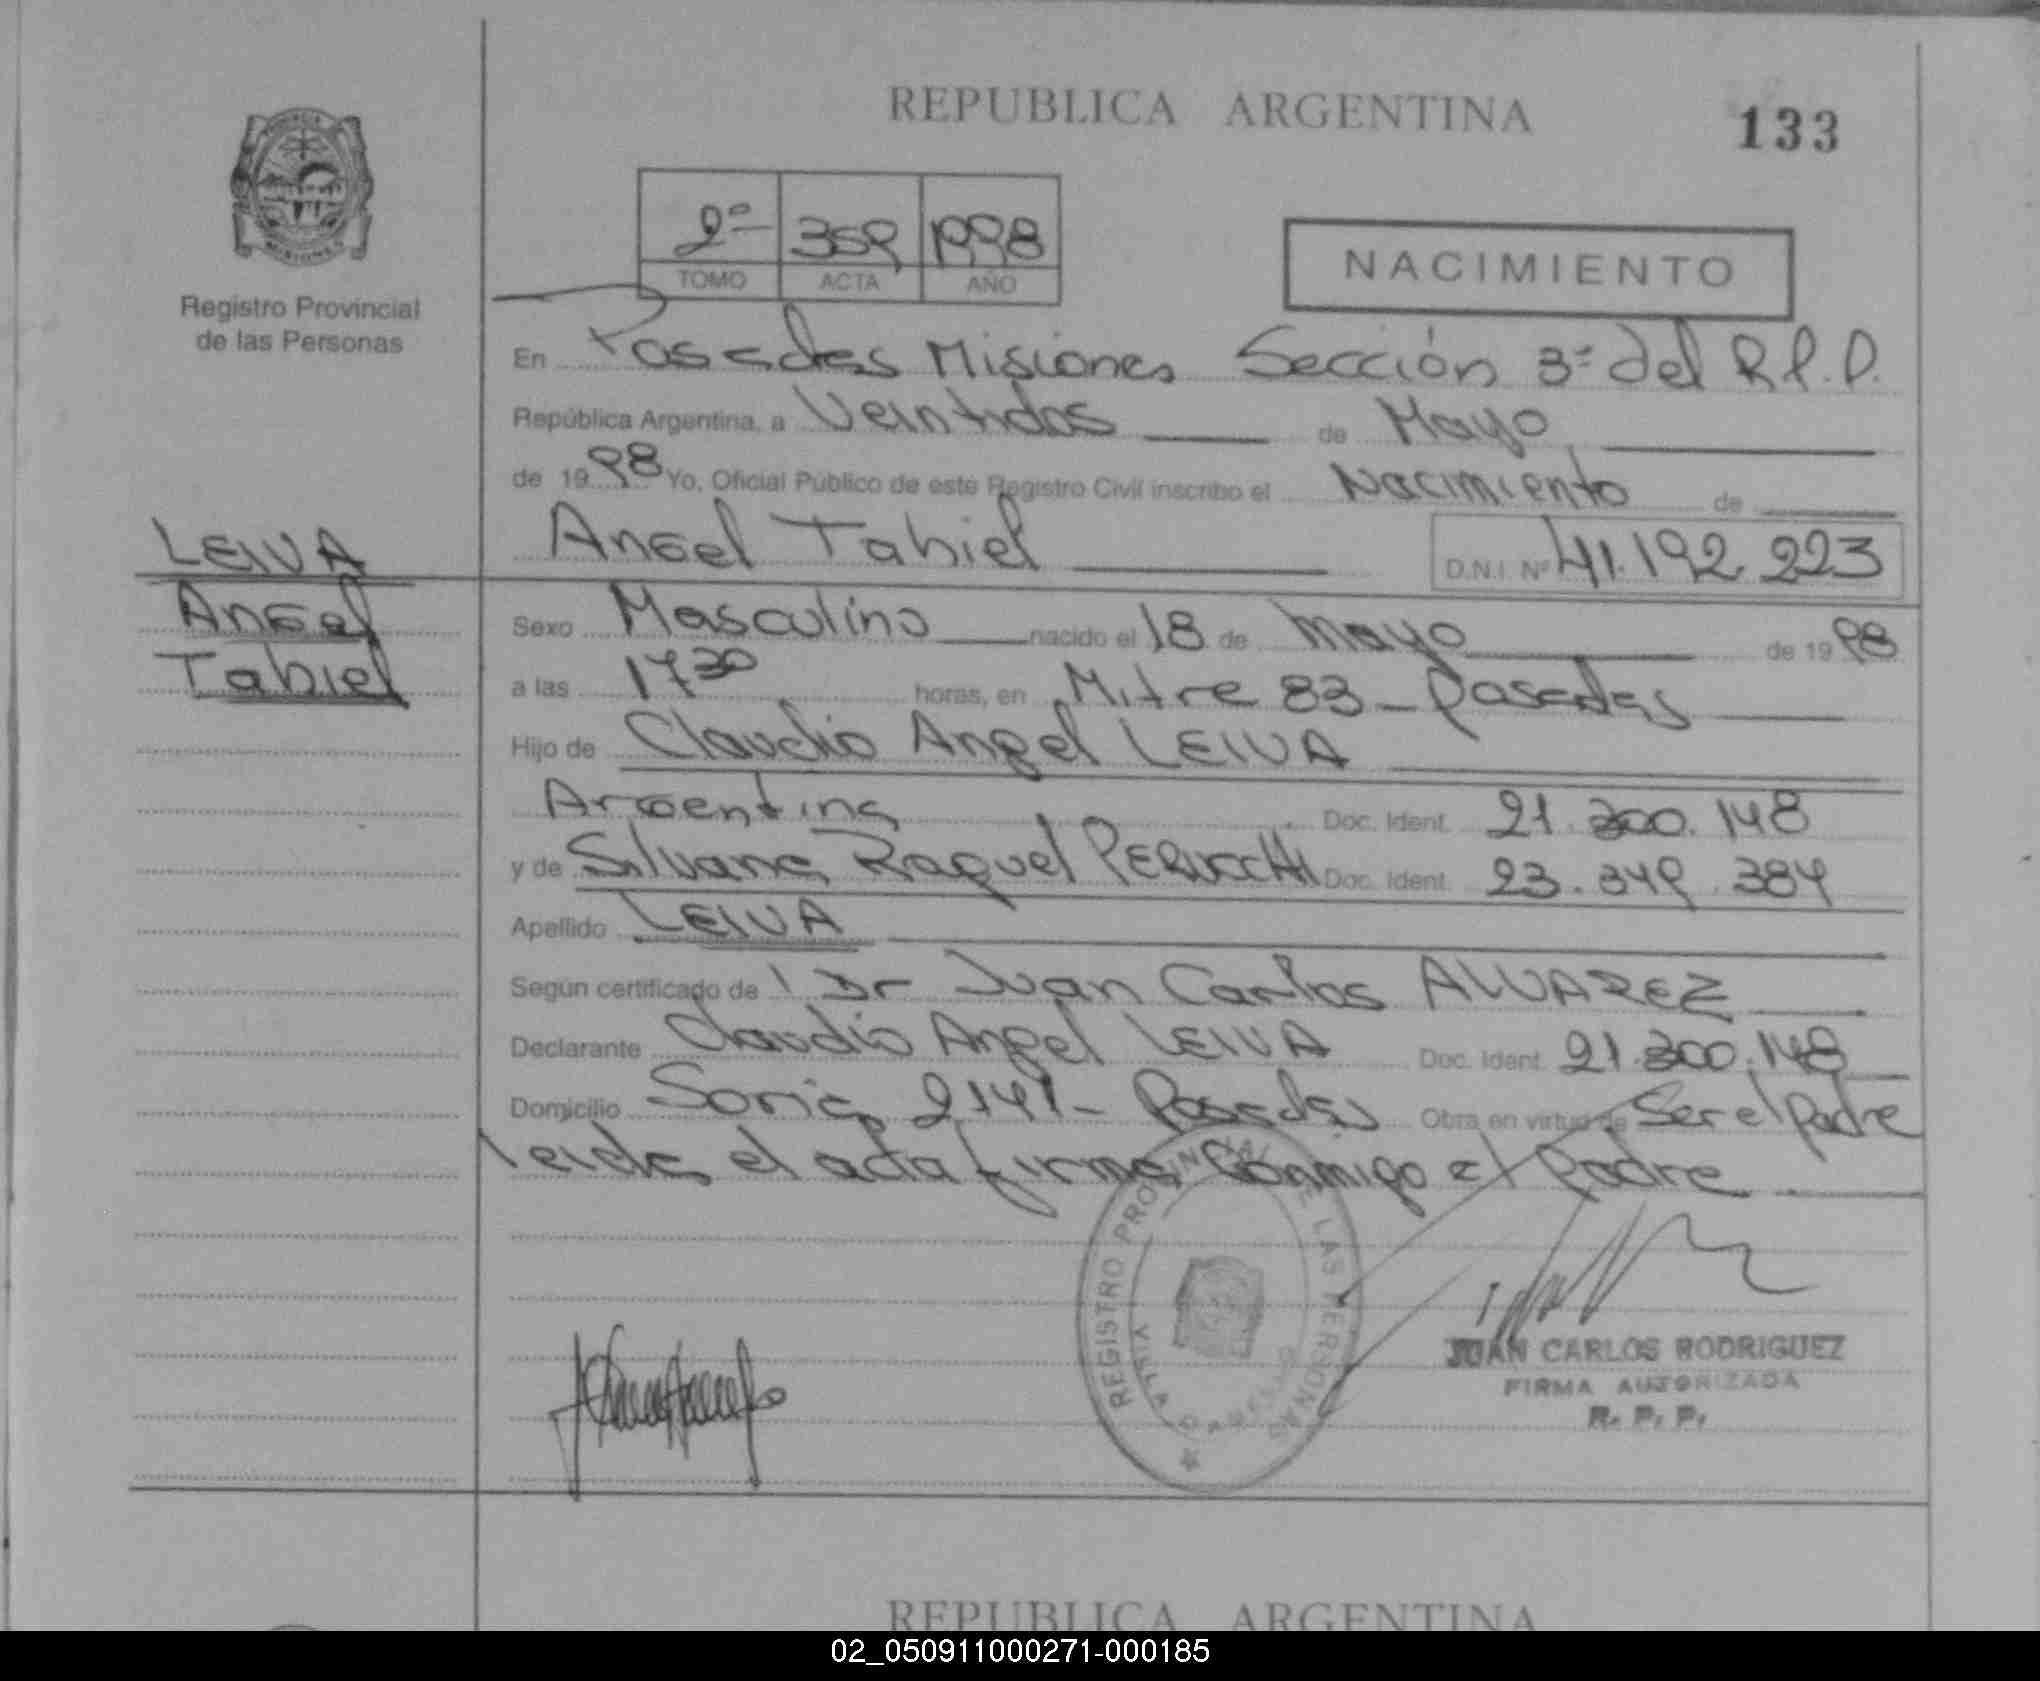 REPUBLICA ARGENTINA
133
2º 359 1998
TOMO ACTA AÑO
NACIMIENTO
Registro Provincial
de las Personas
En Posadas Misiones Sección 3º del R.P.P.
República Argentina, a Veintidos de Mayo
de 1998 Yo, Oficial Público de este Registro Civil inscribo el Nacimiento de
Angel Tahiel D.N.I. Nº 41.192.223
LEIVA
Angel
Tahiel
Sexo Masculino nacido el 18 de Mayo de 1998
a las 17 30 horas, en Mitre 83 - Posadas
Hijo de Claudio Angel LEIVA
Argentina Doc. Ident. 21.300.148
y de Silvana Raquel PERUCCHI Doc. Ident. 23.349.384
Apellido LEIVA
Según certificado de l Dr Juan Carlos ALVAREZ
Declarante Claudio Angel LEIVA Doc. Ident. 21.300.148
Domicilio Soria 2141 - Posadas Obra en virtud de Ser el padre
leida el acta firma conmigo el Padre
REGISTRO PROVINCIAL DE LAS PERSONAS
JUAN CARLOS RODRIGUEZ
FIRMA AUTORIZADA
R. P. P.
REPUBLICA ARGENTINA
02_050911000271-000185